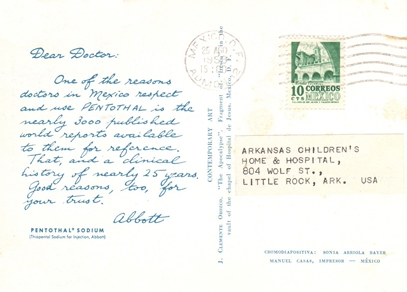 Dear Doctor:
One of the reasons
doctors in Mexico respect
and use PENTOTHAL is the
nearly 3000 published
world reports available
to them for reference.
That, and a clinical
history of nearly 25 years.
Good reasons, too, for
your trust.
Abbott
PENTOTHAL® SODIUM
(Thiopental Sodium for Injection, Abbott)
CONTEMPORARY ART
J. Clemente Orozco. "The Apocalypse". Fragment of
vault of the chapel of Hospital de Jesus. Mexico, D. F.
10 CORREOS
CTS MEXICO
ARKANSAS CHILDREN'S
HOME & HOSPITAL,
804 WOLF ST.,
LITTLE ROCK, ARK. USA
CROMOSIAPOSITIVA: SONJA ARREOLA BAYER
MANUEL CASAS, IMPRESOR — MÉXICO